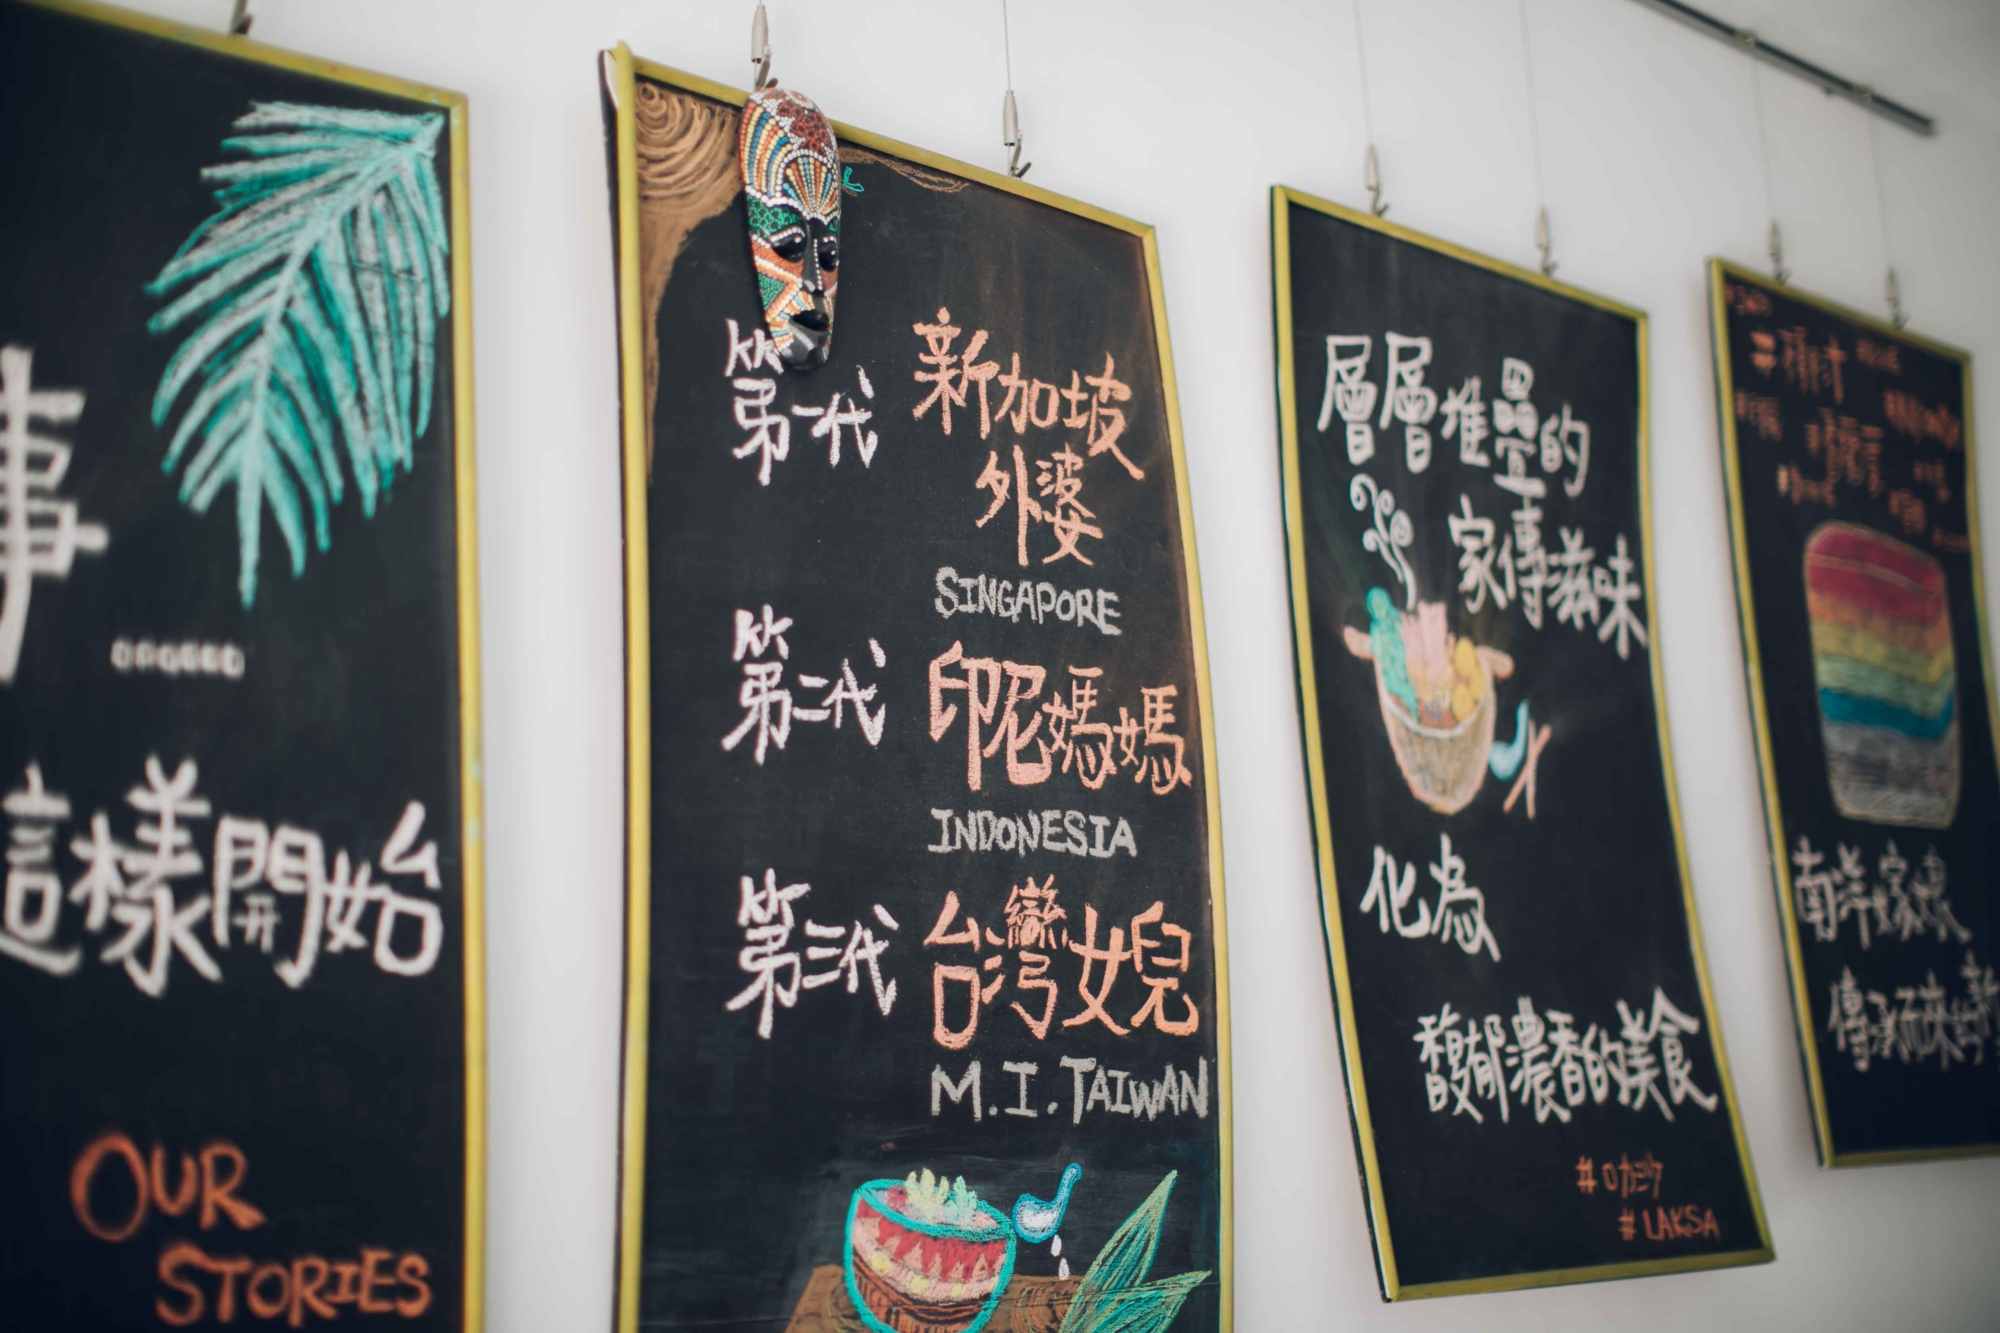 事
這樣開始
OUR
STORIES
第一代 新加坡
外婆
SINGAPORE
第二代 印尼媽媽
INDONESIA
第三代 台灣女兒
M.I. TAIWAN
層層堆疊的
家傳滋味
化為
馥郁濃香的美食
#叻沙
#LAKSA
南洋
傳承而來的